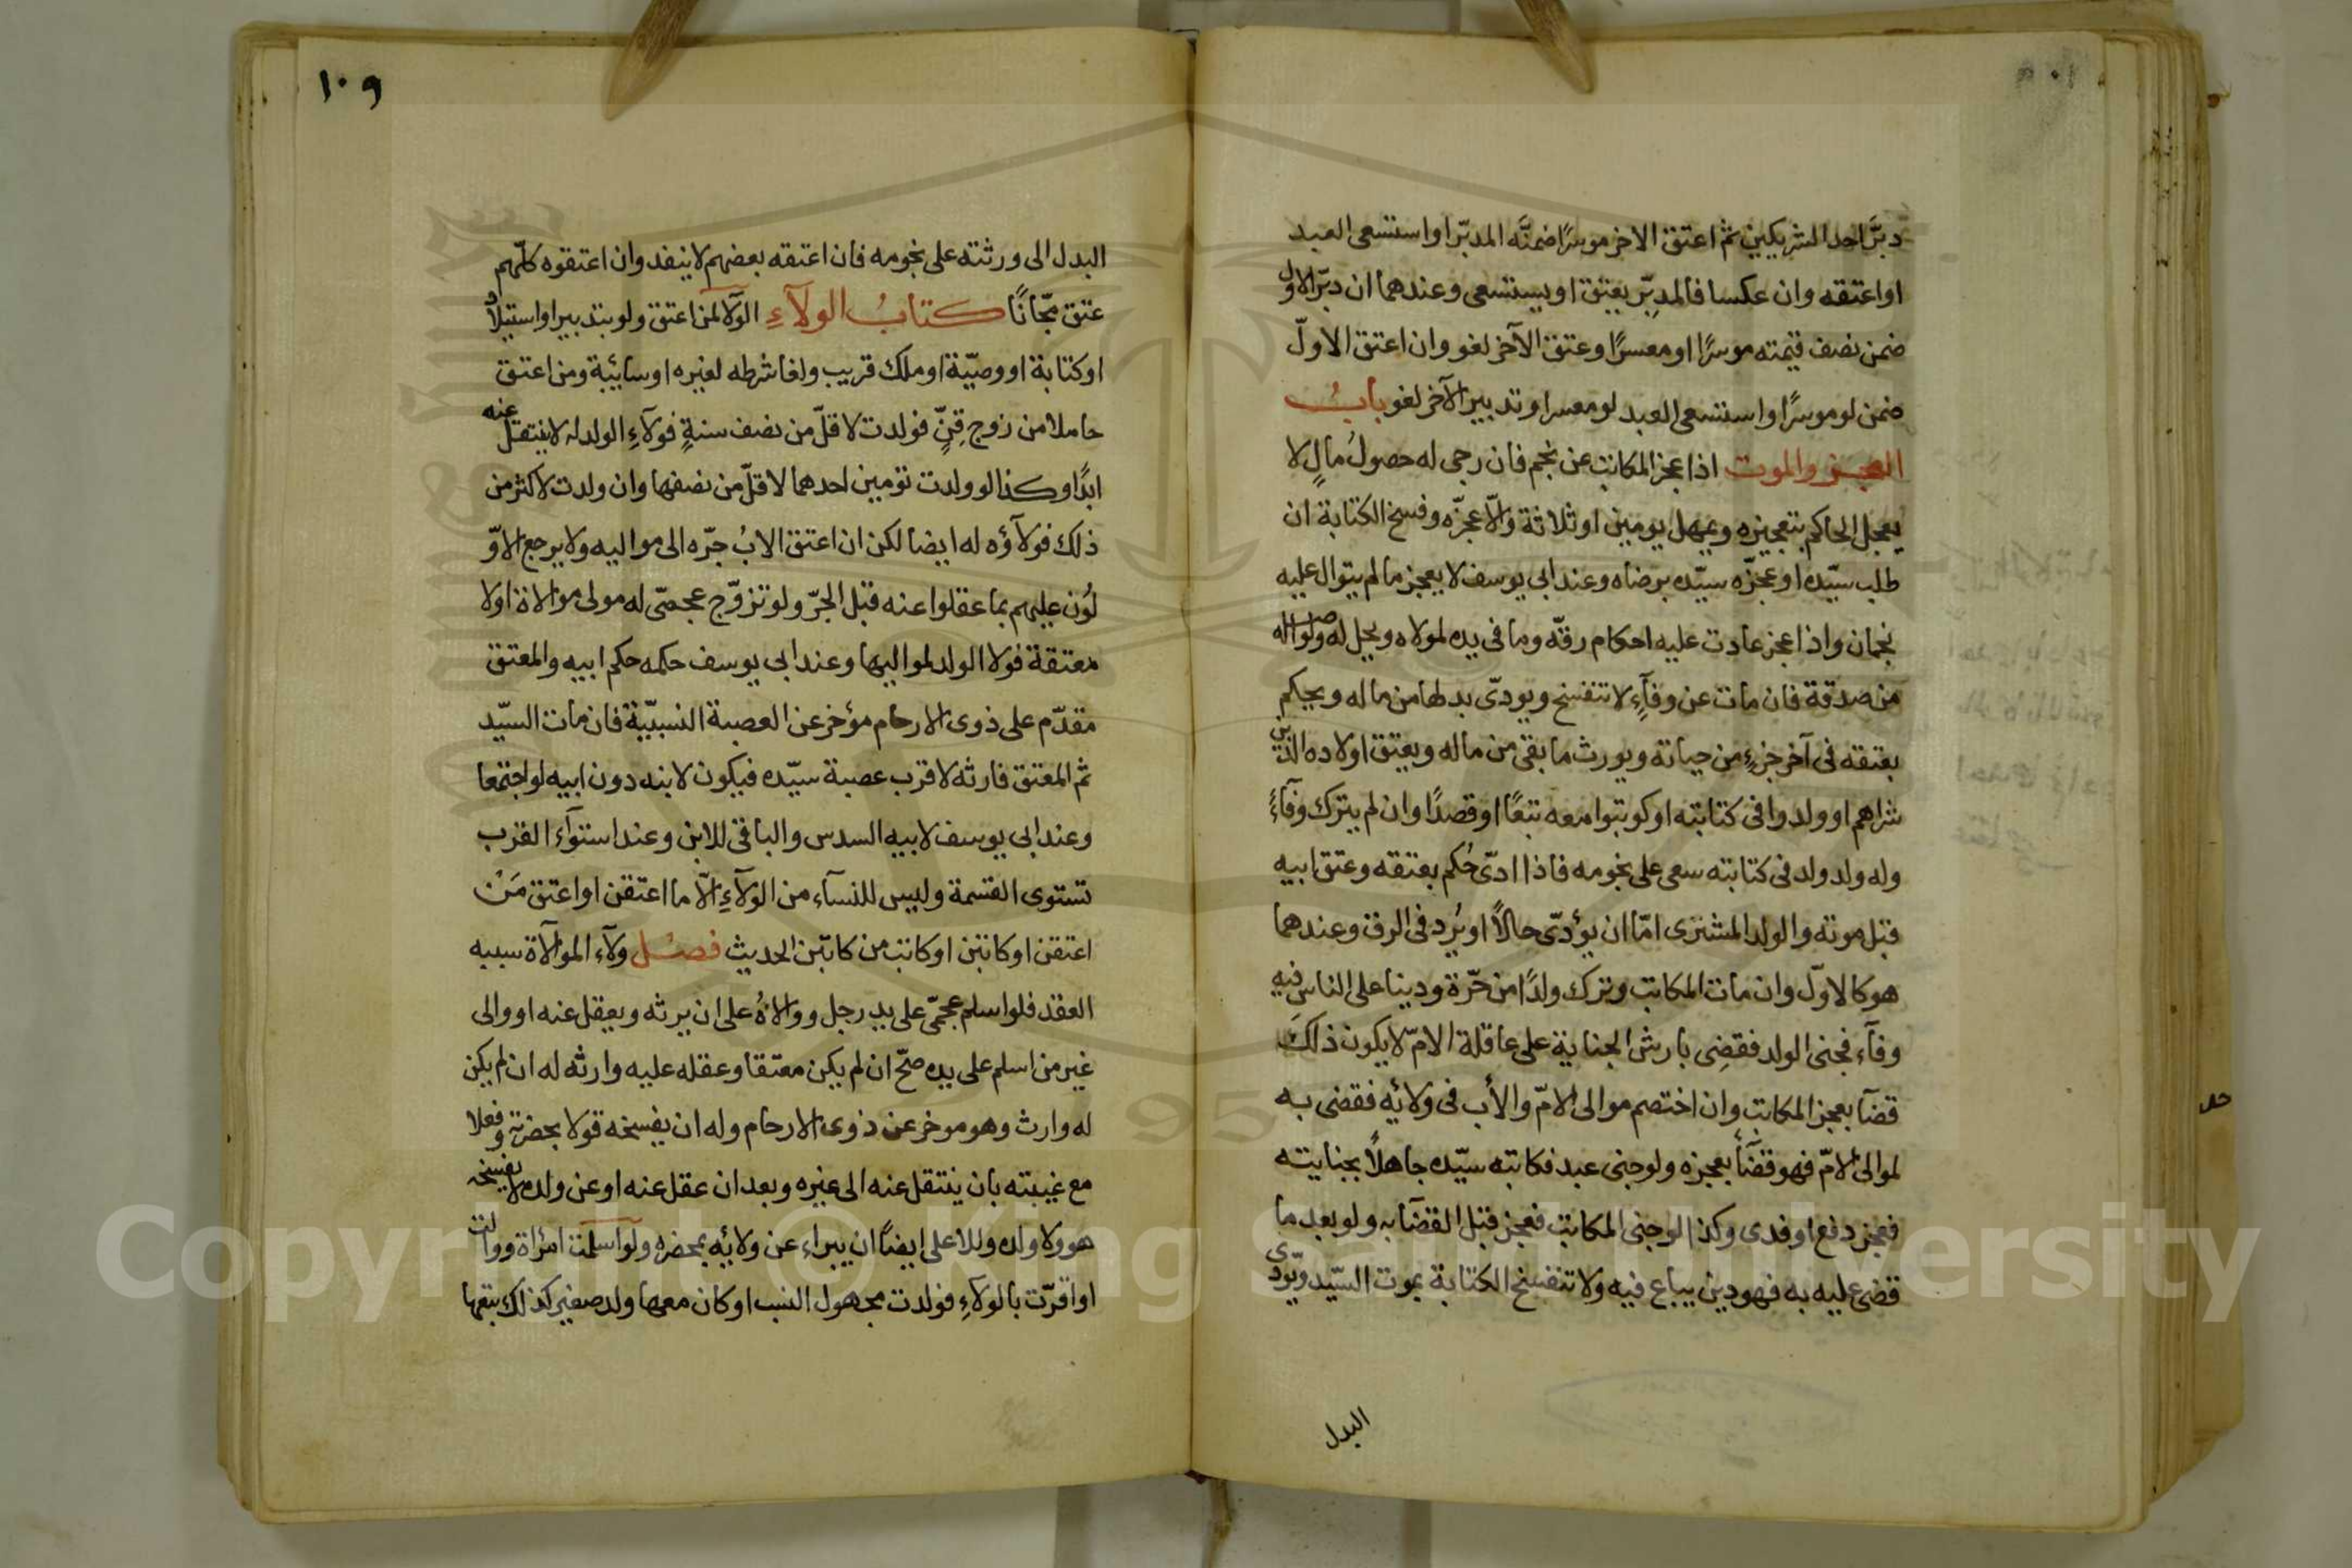 دبّر احد الشريكين ثم اعتق الاخر موسرًا ضمنّه المدبّر او استسعى العبد
او اعتقه وان عكسا فالمدبِّر يعتق او يستسعى وعندهما ان دبّر الاول
ضمن نصف قيمته موسرًا او معسرًا وعتق الآخر لغو وان اعتق الاوّل
ضمن لو موسرًا واستسعى العبد لو معسرا وتدبير الآخر لغو بابُ
العجز والموت اذا عجز المكاتب عن نجم فان رجى له حصولُ مالٍ لا
يعجل الحاكم بتعجيزه ويمهل يومين او ثلاثة والّا عجزّه وفسخ الكتابة ان
طلب سيّده او عجزّه سيّده برضاه وعند ابى يوسف لا يعجز ما لم يتوال عليه
نجمان واذا عجز عادت عليه احكام رقّه وما فى يده لمولاه ويحل له ولو اصله
من صدقة فان مات عن وفآءٍ لا تنفسخ ويودّى بدلها من ماله ويحكم
بعتقه فى آخر جزءٍ من حياته ويورث ما بقى من ماله ويعتق اولاده الذين
شراهم او ولدوا فى كتابته او كوتبوا معه تبعًا او قصدًا وان لم يترك وفآءً
وله ولد ولد فى كتابته سعى على نجومه فاذا ادّى حُكم بعتقه وعتق ابيه
قبل موته والولد المشترى امّا ان يؤدّى حالاً او يُرد فى الرق وعندهما
هو كالاوّل وان مات المكاتب وترك ولدًا من حرّة ودينا على الناس فيه
وفآء فجنى الولد فقضِى بارش الجناية على عاقلة الامّ لا يكون ذلك
قضآ بعجز المكاتب وان اختصم موالى الامّ والأب فى ولائِه فقضى به
لموالى الامّ فهو قضآءٌ بعجزه ولو جنى عبد فكاتبه سيّده جاهلاً بجنايته
فعجز دفع او فدى وكذا لو جنى المكاتب فعجز قبل القضآ به ولو بعد ما
قضى عليه به فهو دين يباع فيه ولا تنفسخ الكتابة بموت السّيد ويودّى
البدل
١٠٩
البدل الى ورثته على نجومه فان اعتقه بعضهم لا ينفد وان اعتقوه كلّهم
عتق مجّانًا كتابُ الولآءِ الولآ لمن اعتق ولو بتدبير او استيلاد
او كتابة او وصيّة او ملك قريب ولغا شرطه لغيره او سائبة ومن اعتق
حاملا من زوج قِنٍّ فولدت لاقلّ من نصف سنةٍ فولآءِ الولد له لا ينتقل عنه
ابدًا وكذا لو ولدت تومين احدهما لاقلّ من نصفها وان ولدت لاكثر من
ذلك فولآؤه له ايضا لكن ان اعتق الابُ جرّه الى مواليه ولا يرجع الاوّ
لُون عليهم بما عقلوا عنه قبل الجرّ ولو تزوّج عجمىّ له مولى موالاة اولا
معتقة فولا الولد لمواليها وعند ابى يوسف حكمه حكم ابيه والمعتق
مقدّم على ذوى الارحام مؤخر عن العصبة النسبيّة فان مات السيّد
ثم المعتق فارثه لاقرب عصبة سيّده فيكون لابنه دون ابيه لو اجتمعا
وعند ابى يوسف لابيه السدس والباقى للابن وعند استوآء القرب
تستوى القسمة وليس للنسآء من الولآءِ الّا ما اعتقن او اعتق مَنْ
اعتقن او كاتبن او كاتب من كاتبّن الحديث فصُل ولآء الموالآة سببه
العقد فلو اسلم عجمّى على يد رجل ووالاهُ على ان يرثه ويعقل عنه او والى
غير من اسلم على يده صحّ ان لم يكن معتقا وعقله عليه وارثه له ان لم يكن
له وارث وهو موخر عن ذوى الارحام وله ان يفسخه قولا بحضرته وفعلا
مع غيبته بان ينتقل عنه الى غيره وبعد ان عقل عنه او عن ولده لا يفسخه
هو ولا ولده وللاعلى ايضًا ان يبراء عن ولائِه بمحضره ولو اسلمت امرُأة ووالت
او اقرّت بالولآءِ فولدت مجهول النسب او كان معها ولد صغير كذلك يتبعها
Copyright © King Saud University